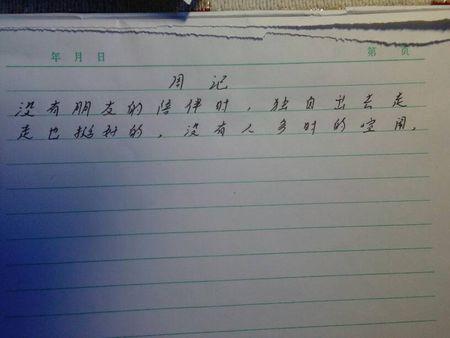 年 月 日 第 页
周 记
没有朋友的陪伴时，独自出去走
走也挺好的，没有人多时的喧闹。